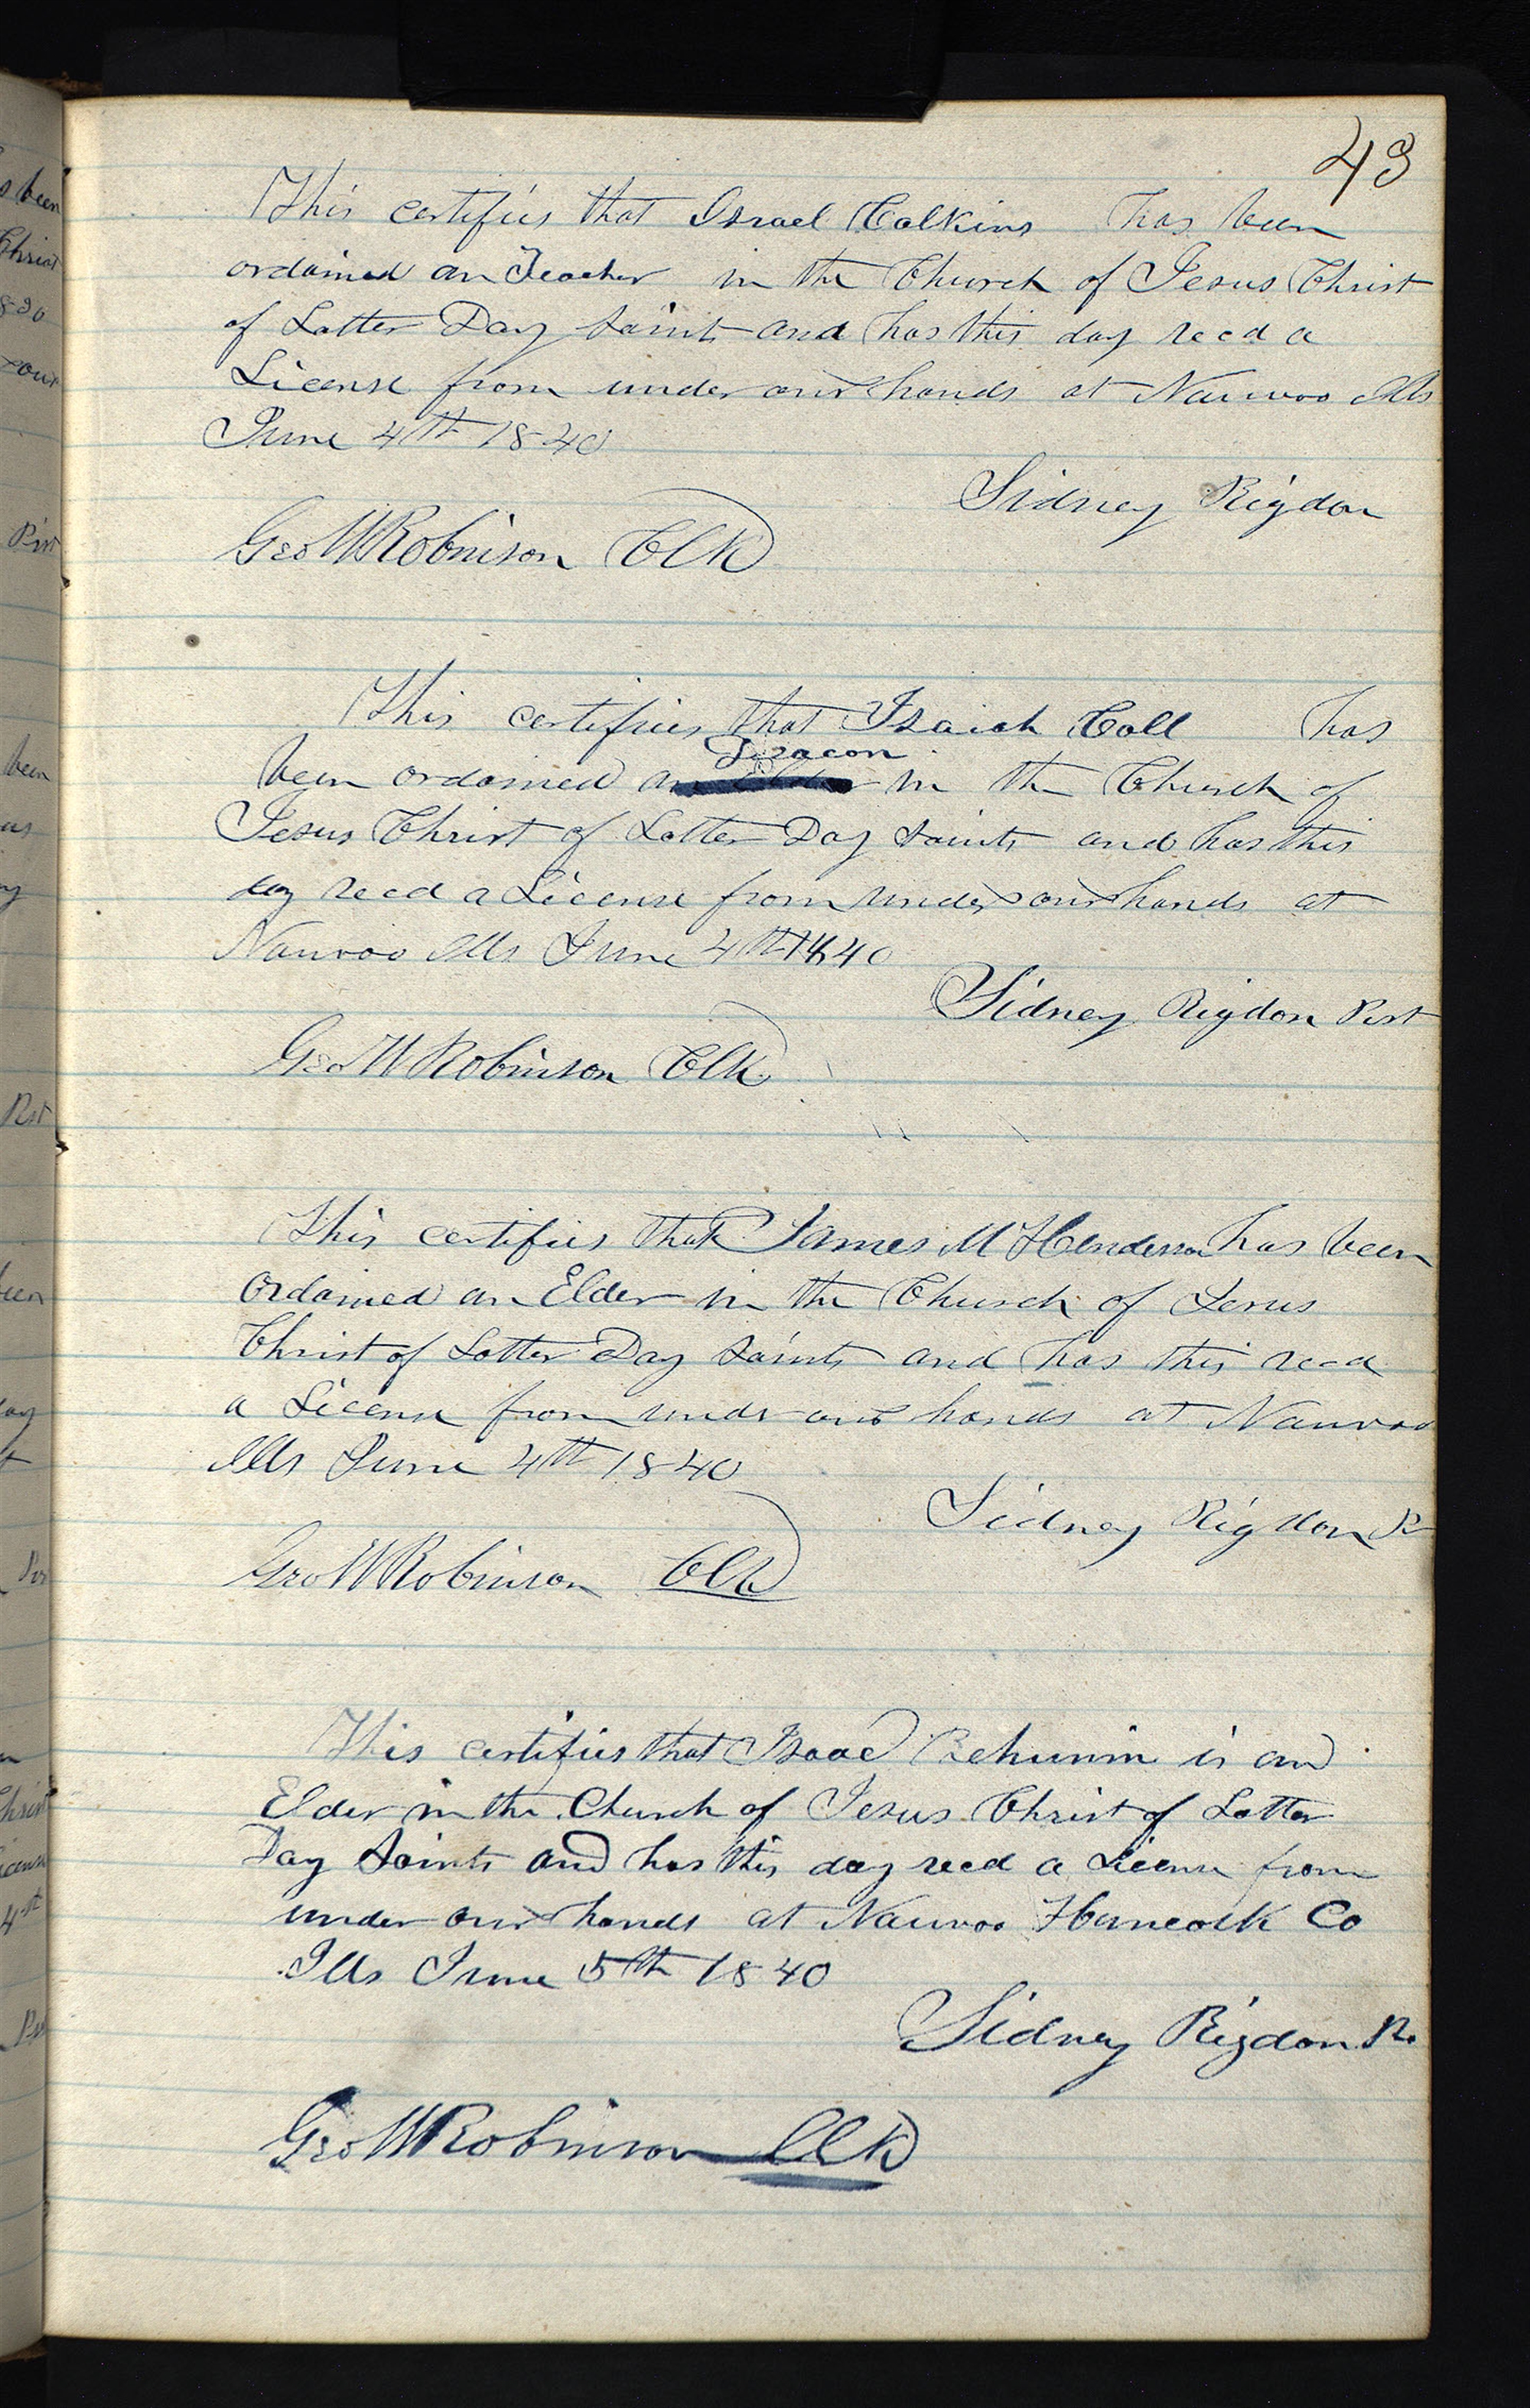 43
This certifies that Israel Calkins has been
ordained an Teacher in the Church of Jesus Christ
of Latter Day Saints and has this day recd a
License from under our hands at Nauvoo Ills
June 4th 1840
Sidney Rigdon
Geo W Robinson Clk
This certifies that Isaiah Call has
Deacon
been ordained an Elder in the Church of
Jesus Christ of Latter Day Saints and has this
day recd a License from under our hands at
Nauvoo Ills June 4th 1840
Sidney Rigdon Pest
Geo W Robinson Clk
This certifies that James M Henderson has been
ordained an Elder in the Church of Jesus
Christ of Latter Day Saints and has this recd
a License from undr our hands at Nauvoo
Ills June 4th 1840
Sidney Rigdon Pr
Geo W Robinson Clk
This certifies that Isaac is an
Elder in the Church of Jesus Christ of Latter
Day Saints and has this day recd a License from
under our hands at Nauvoo Hancock Co
Ills June 5th 1840
Sidney Rigdon Pr
Geo W Robinson Clk